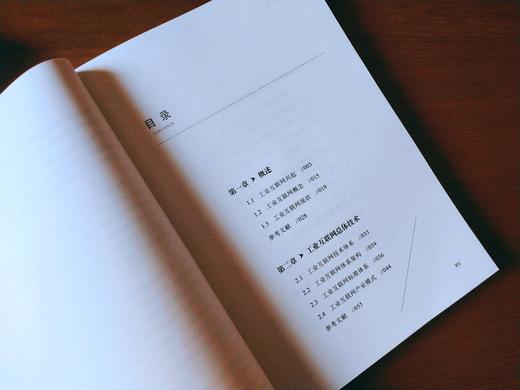 目录
第一章 ➤ 概述
1.1 工业互联网兴起 //003
1.2 工业互联网概念 //015
1.3 工业互联网现状 //019
参考文献 //028
第二章 ➤ 工业互联网总体技术
2.1 工业互联网技术体系 //033
2.2 工业互联网体系架构 //034
2.3 工业互联网标准体系 //036
2.4 工业互联网产业模式 //044
参考文献 //055
XV